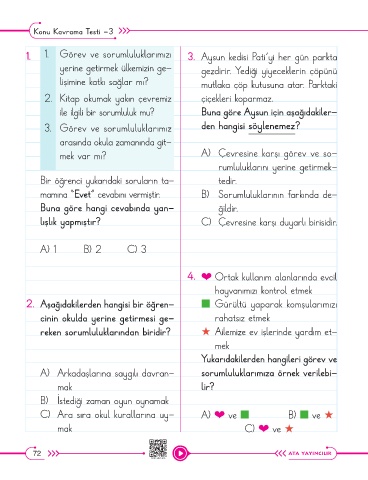 Konu Kavrama Testi -3
1. 1. Görev ve sorumluluklarımızı
yerine getirmek ülkemizin ge-
lişimine katkı sağlar mı?
2. Kitap okumak yakın çevremiz
ile ilgili bir sorumluluk mu?
3. Görev ve sorumluluklarımız
arasında okula zamanında git-
mek var mı?
Bir öğrenci yukarıdaki soruların ta-
mamına "Evet" cevabını vermiştir.
Buna göre hangi cevabında yan-
lışlık yapmıştır?
A) 1 B) 2 C) 3
2. Aşağıdakilerden hangisi bir öğren-
cinin okulda yerine getirmesi ge-
reken sorumluluklarından biridir?
A) Arkadaşlarına saygılı davran-
mak
B) İstediği zaman oyun oynamak
C) Ara sıra okul kurallarına uy-
mak
3. Aysun kedisi Pati'yi her gün parkta
gezdirir. Yediği yiyeceklerin çöpünü
mutlaka çöp kutusuna atar. Parktaki
çiçekleri koparmaz.
Buna göre Aysun için aşağıdakiler-
den hangisi söylenemez?
A) Çevresine karşı görev ve so-
rumluluklarını yerine getirmek-
tedir.
B) Sorumluluklarının farkında de-
ğildir.
C) Çevresine karşı duyarlı birisidir.
4. ❤ Ortak kullanım alanlarında evcil
hayvanımızı kontrol etmek
■ Gürültü yaparak komşularımızı
rahatsız etmek
★ Ailemize ev işlerinde yardım et-
mek
Yukarıdakilerden hangileri görev ve
sorumluluklarımıza örnek verilebi-
lir?
A) ❤ ve ■ B) ■ ve ★
C) ❤ ve ★
72
ATA YAYINCILIK